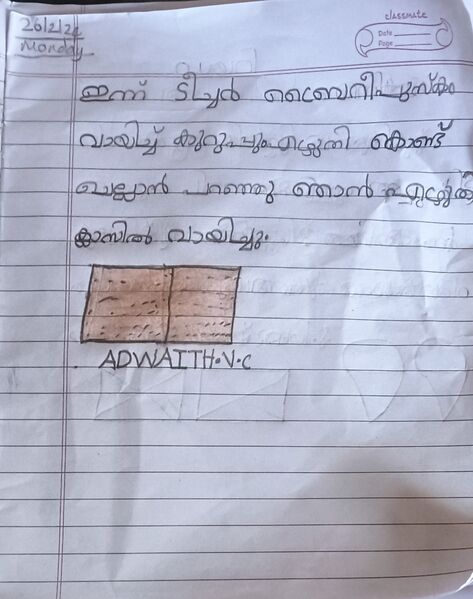 26/2/24
Monday
classmate
Date
Page
ഇന്ന് ടീച്ചർ ലൈബ്രറിപുസ്തകം
വായിച്ച് കുറുപ്പും എഴുതി കൊണ്ട്
ചെല്ലാൻ പറഞ്ഞു ഞാൻ എഴുതി
ക്ലാസിൽ വായിച്ചു.
ADWAITH.V.C